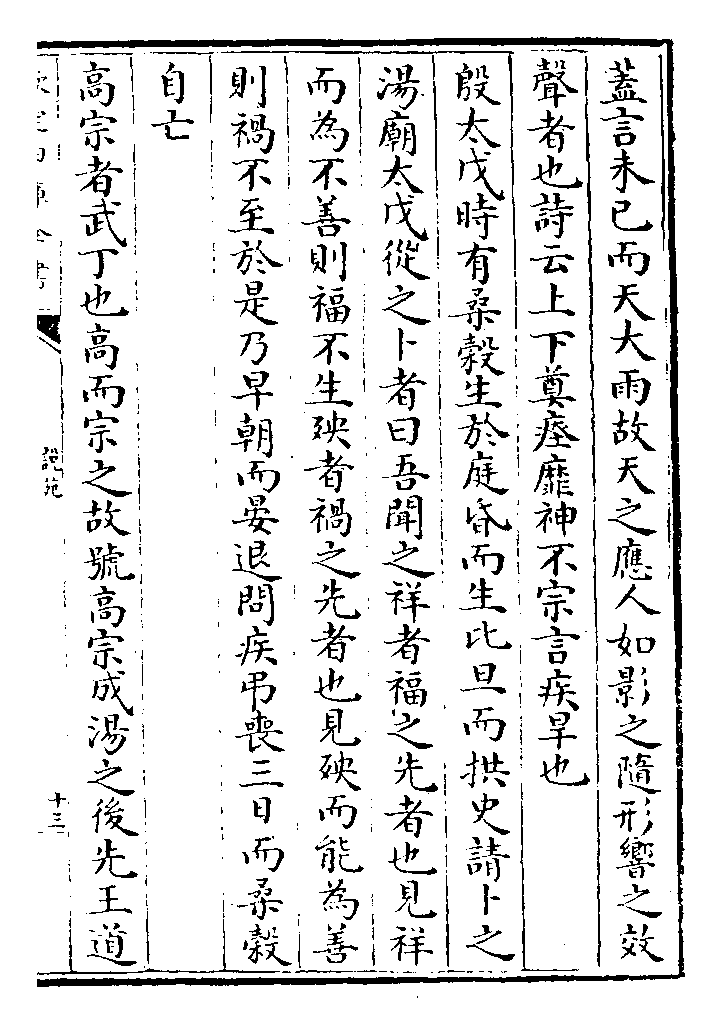 蓋言未已而天大雨故天之應人如影之隨形響之效
聲者也詩云上下奠瘞靡神不宗言疾旱也
殷太戊時有桑榖生於庭昏而生比旦而拱史請卜之
湯廟太戊從之卜者曰吾聞之祥者福之先者也見祥
而為不善則福不生殃者禍之先者也見殃而能為善
則禍不至於是乃早朝而晏退問疾弔喪三日而桑榖
自亡
高宗者武丁也高而宗之故號高宗成湯之後先王道
欽定四庫全書
說苑
十三